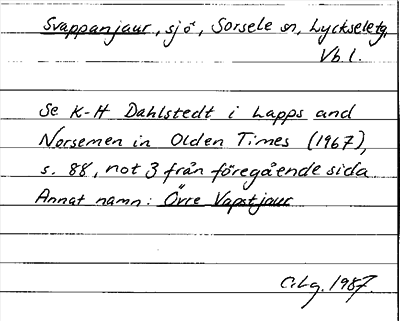 Svappanjaur, sjö, Sorsele sn, Lyckseletg,
Vb l.
Se K-H Dahlstedt i Lapps and
Norsemen in Olden Times (1967),
s. 88, not 3 från föregående sida
Annat namn: Övre Vapstjaur
C.Lg. 1987.